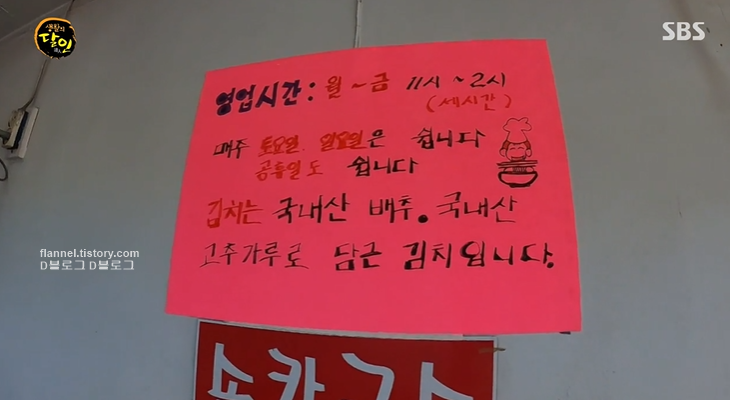 생활의
달인
SBS
영업시간 : 월 ~ 금 11시 ~ 2시
(세시간)
매주 토요일. 일요일은 쉽니다
공휴일도 쉽니다
김치는 국내산 배추. 국내산
고추가루로 담근 김치입니다.
flannel.tistory.com
D블로그 D블로그
손칼국수